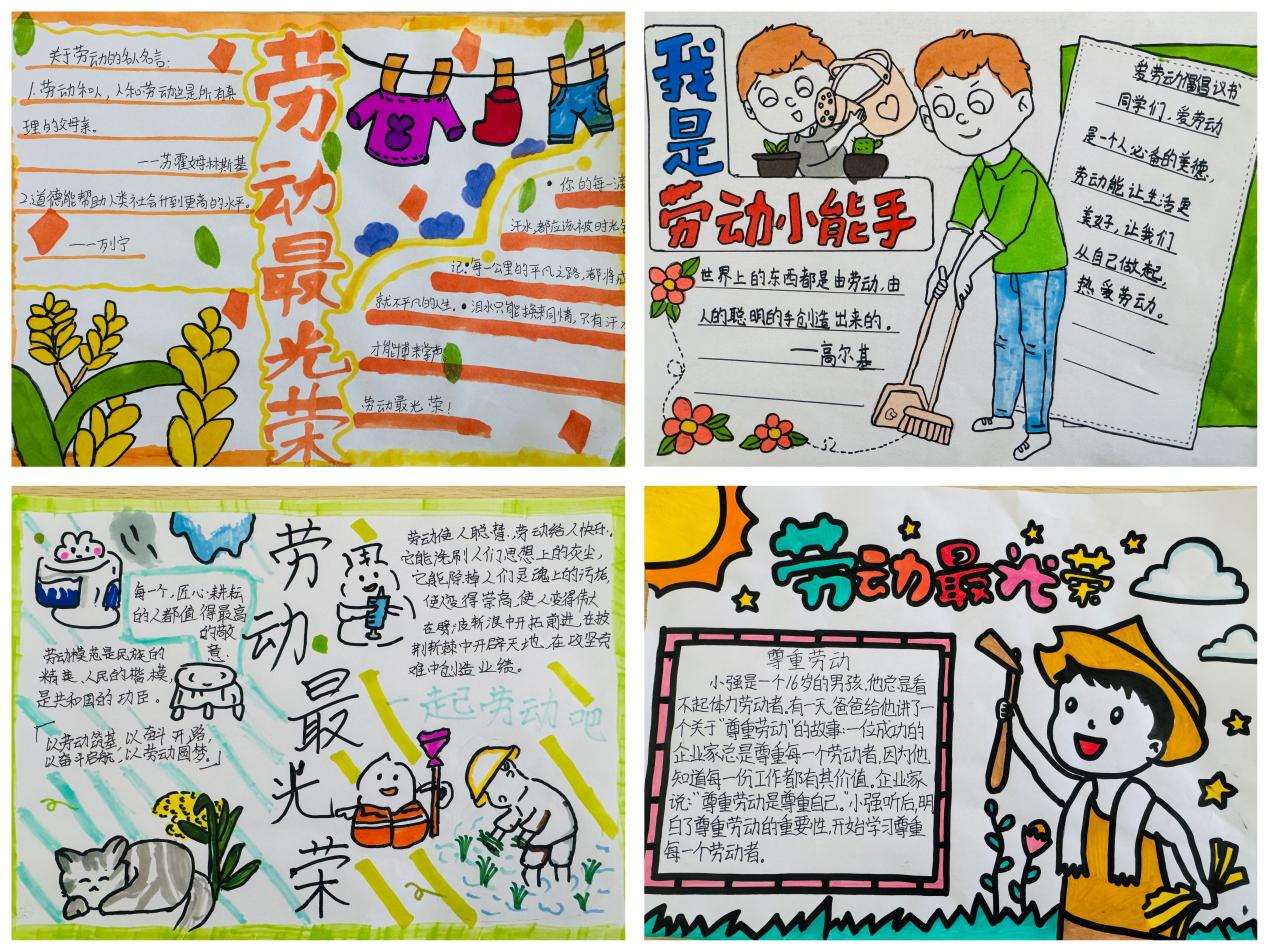 关于劳动的名人名言:
1.劳动和人,人和劳动这是所有真
理的父母亲。
——苏霍姆林斯基
2.道德能帮助人类社会升到更高的水平。
——列宁
劳动最光荣
• 你的每一滴
汗水,都应该被时光
记•每一公里的平凡之路,都将成
就不平凡的人生。• 泪水只能换来同情,只有汗水
才能博来掌声。
劳动最光荣!
我是
劳动小能手
世界上的东西都是由劳动,由
人的聪明的手创造出来的。
——高尔基
爱劳动倡议书
同学们,爱劳动
是一个人必备的美德,
劳动能让生活更
美好,让我们
从自己做起,
热爱劳动。
每一个,匠心耕耘
的人都值得最高
的敬
意.
劳动模范是民族的
精英、人民的楷模,
是共和国的功臣。
「以劳动筑基,以奋斗开路,
以奋斗启航,以劳动圆梦。」
劳动最光荣
劳动使人聪慧.劳动给人快乐.
它能洗刷人们思想上的灰尘,
它能除掉人们灵魂上的污垢,
使变得崇高,使人变得伟大
在劈波斩浪中开拓前进,在披
荆斩棘中开辟天地,在攻坚克
难中创造业绩。
一起劳动吧
劳动最光荣
尊重劳动
小强是一个16岁的男孩,他总是看
不起体力劳动者。有一天,爸爸给他讲了一
个关于“尊重劳动”的故事:一位成功的
企业家总是尊重每一个劳动者,因为他
知道每一份工作都有其价值。企业家
说:“尊重劳动是尊重自己。”小强听后,明
白了尊重劳动的重要性,开始学习尊重
每一个劳动者。